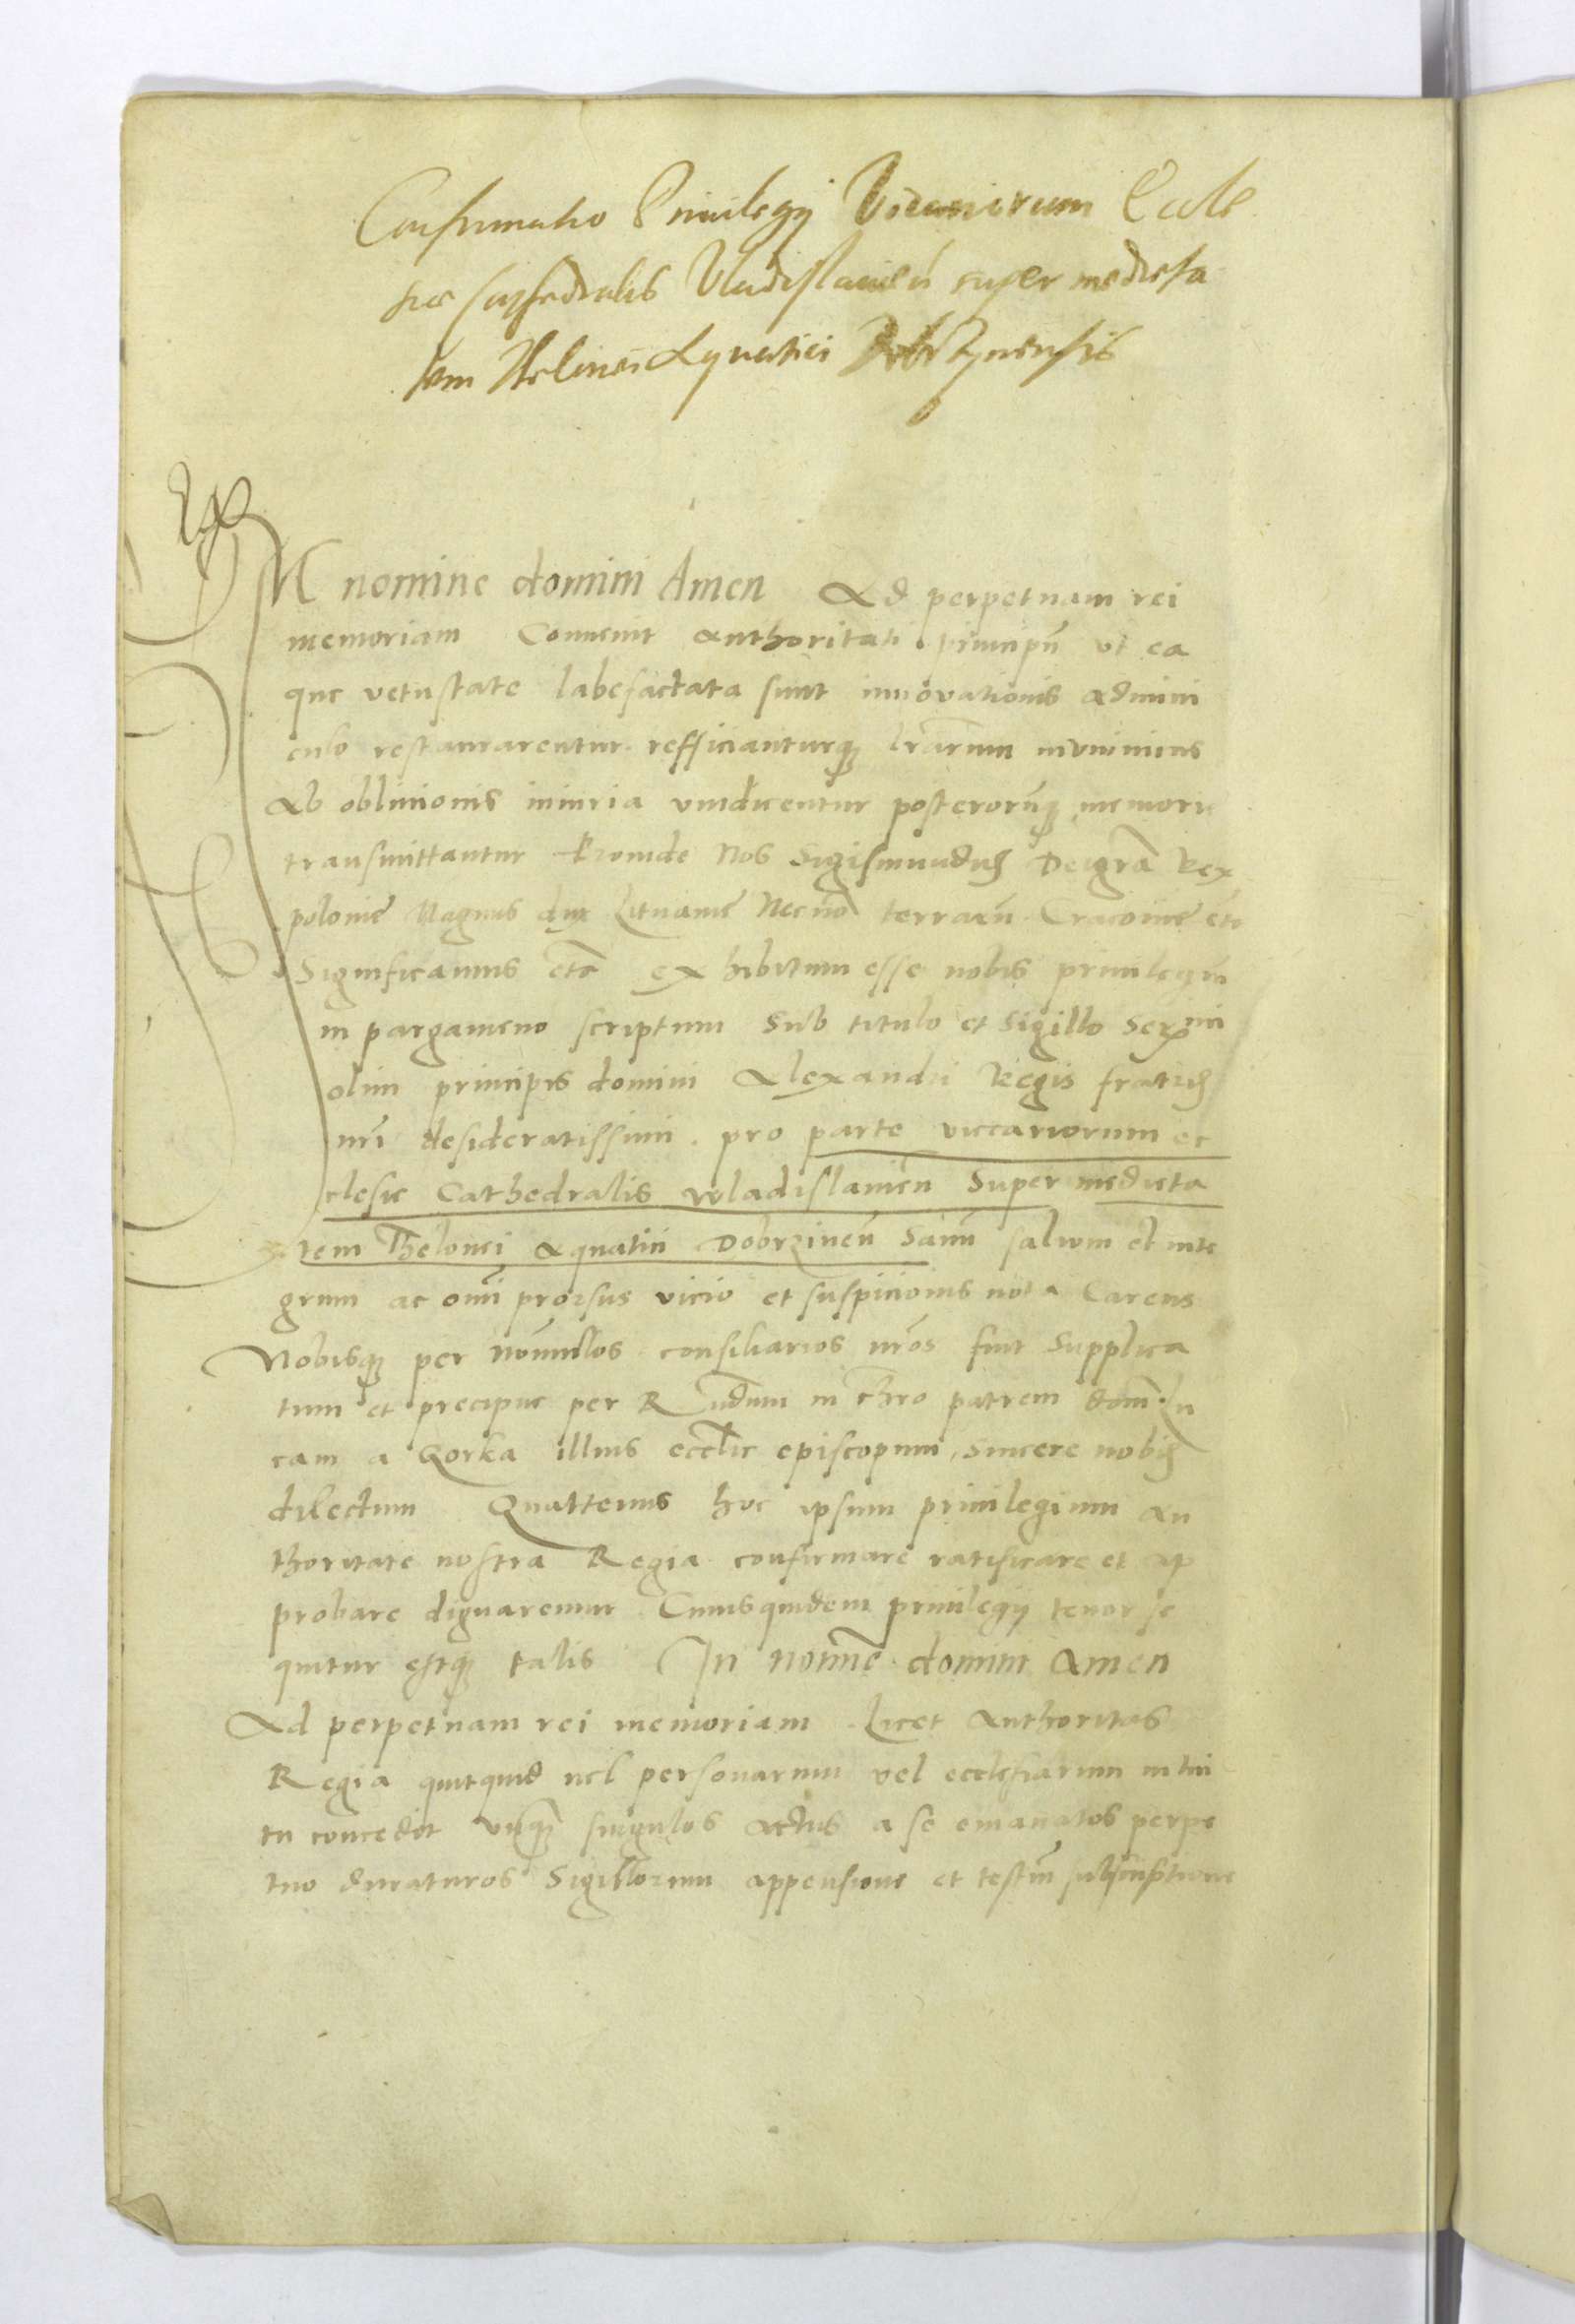 Confirmatio Priuilegij Vicariorum Eccle
siae Cathedralis Vladislauień super medieta
tem Thelonei Aquatici Dobrzynensis
IN nomine domini Amen Ad perpetuam rei
memoriam Conuenit Authoritati principū ut ea
que vetustate labefactata sunt innovationis Admini
culo restaurarentur reffitianturqʒ lrārum munimine
Ab obliuionis iniuria vindicentur posterorūqʒ memorie
transmittantur Proinde Nos Sigismundus Dei grā Rex
polonie Magnus dux Lituanie Necnō terrarū Cracouie etc
Significamus etc exhibitum esse nobis priuilegiū
in pargameno scriptum Sub titulo et Sigillo Sermi
olim principis domini Alexandri Regis fratris
nrī desideratissimi pro parte viccariorum ec
clesie Cathedralis wladislauień Super medieta
tem Thelonei Aquatici Dobrzineń Sanū saluum et inte
grum ac omī prorsus vicio et suspicionis nota Carens
Nobisqʒ per nōnullos consiliarios nrōs fuit Supplica
tum et precipue per Rndum in chro patrem dom Lu
cam a Gorka illius ecclie episcopum Sincere nobis
dilectum Quattenus hoc ipsum priuilegium Au
thoritate nostra Regia confirmare ratificare et ap
probare dignaremur Cuiusquidem priuilegij tenor se
quitur estqʒ talis In nomīe domini Amen
Ad perpetuam rei memoriam Licet Authoritas
Regia quitquid uel personarum vel ecclesiarum intui
tu concedit singulos actus a se emanatos perpe
tuo duraturos Sigillorum appensione et testiū subscriptione